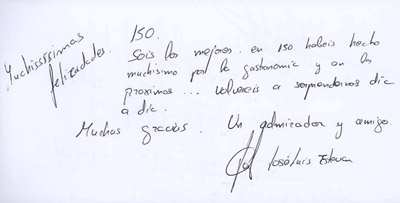 Muchissssimas
felicidades.
150.
Sois los mejores. en 150 habeis hecho
muchisimo por la gastronomia y en los
proximos... volvereis a sorprenderos dia
a dia.
Muchas gracias. Un admirador y amigo.
José Luis Esteva